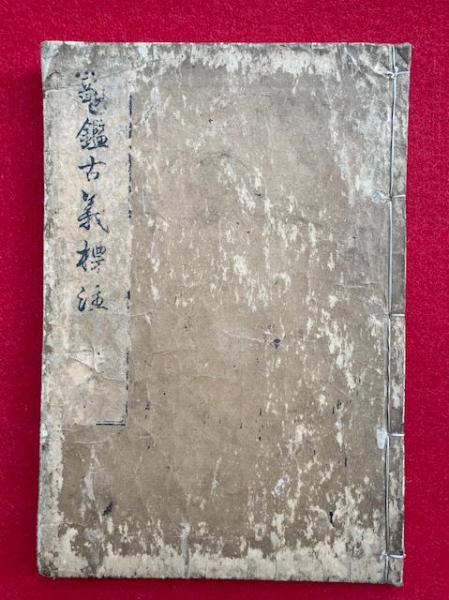 鑑古義標注